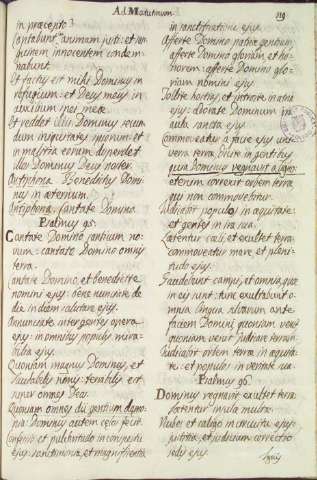 Ad Matutinum.
119
in præcepto?
Captabunt animam justi: et san
guinem innocentem condem-
nabunt.
Et factus est mihi Dominus in
refugium: et Deus meus in
auxilium spei meæ.
Et reddet illis Dominus iniqui
tatem ipsorum: et
in malitia eorum disperdet
illos Dominus Deus noster.
Antiphona. Benedictus Domi-
nus in æternum.
Antiphona. Cantate Domino.
Psalmus 95.
Cantate Domino canticum no-
vum: cantate Domino omnis
terra.
Cantate Domino, et benedicite
nomini ejus: annuntiate de
die in diem salutare ejus.
Annuntiate inter gentes gloriam
ejus: in omnibus populis mira-
bilia ejus.
Quoniam magnus Dominus, et
laudabilis nimis: terribilis est
super omnes Deos.
Quoniam omnes dii gentium dæmo-
nia: Dominus autem cœlos fecit.
Confessio et pulchritudo in conspectu
ejus: sanctimonia, et magnificentia
in sanctificatione ejus.
Afferte Domino patriæ gentium,
afferte Domino gloriam et ho-
norem: afferte Domino glo-
riam nomini ejus.
Tollite hostias, et introite in atria
ejus: adorate Dominum in
aula sancta ejus.
Commoveatur a facie ejus uni-
versa terra: dicite in gentibus
quia Dominus regnavit a ligno.
etenim correxit orbem terræ
qui non commovebitur:
judicabit populos in æquitate:
et gentes in ira sua.
Lætentur cæli, et exultet terra:
commoveatur mare et pleni-
tudo ejus:
Gaudebunt campi, et omnia, quæ
in eis sunt: tunc exultabunt o-
mnia ligna silvarum ante
faciem Domini quoniam venit
quoniam venit judicare terram.
Judicabit orbem terræ in æquita-
te: et populos in veritate sua.
Psalmus 96.
Dominus regnavit exultet terra:
lætentur insulæ multæ.
Nubes et caligo in circuitu ejus:
justitia, et judicium correctio
sedis ejus.
Ignis